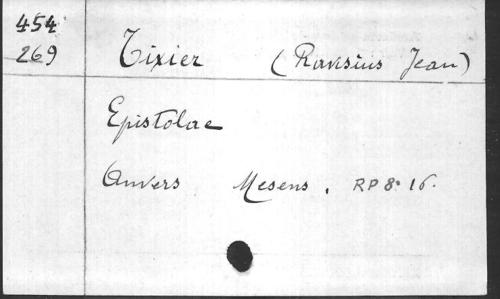 454
269 Tixier (Ravisius Jean)
Epistolae
Anvers Mesens. RP 8° 16.